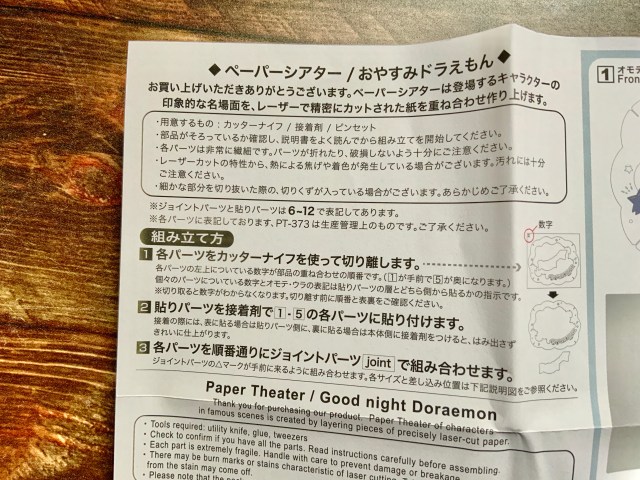 ◆ ペーパーシアター / おやすみドラえもん ◆
お買い上げいただきありがとうございます。ペーパーシアターは登場するキャラクターの
印象的な名場面を、レーザーで精密にカットされた紙を重ね合わせ作り上げます。
・用意するもの：カッターナイフ / 接着剤 / ピンセット
・部品がそろっているか確認し、説明書をよく読んでから組み立てを開始してください。
・各パーツは非常に繊細です。パーツが折れたり、破損しないよう十分にご注意ください。
・レーザーカットの特性から、熱による焦げや着色が発生している場合がございます。汚れには十分
ご注意ください。
・細かな部分を切り抜いた際の、切りくずが入っている場合がございます。あらかじめご了承ください。
※ジョイントパーツと貼りパーツは6~12で表記してあります。
※各パーツに表記しております、PT-373は生産管理上のものです。ご了承ください。
組み立て方
1 各パーツをカッターナイフを使って切り離します。
各パーツの左上についている数字が部品の重ね合わせの順番です。(1が手前で5が奥になります。)
個々のパーツについている数字とオモテ・ウラの表記は貼りパーツの層とどちら側から貼るかの指示です。
※切り取ると数字がわからなくなります。切り離す前に順番と表裏をご確認ください。
2 貼りパーツを接着剤で1-5の各パーツに貼り付けます。
接着の際には、表に貼る場合は貼りパーツ側に、裏に貼る場合は本体側に接着剤をつけると、はみ出さず
きれいに仕上がります。
3 各パーツを順番通りにジョイントパーツ joint で組み合わせます。
ジョイントパーツの△マークが手前に来るように組み合わせます。各サイズと差し込み位置は下記説明図をご参照ください。
数字
Paper Theater / Good night Doraemon
Thank you for purchasing our product. Paper Theater of characters
in famous scenes is created by layering pieces of precisely laser-cut paper.
• Tools required: utility knife, glue, tweezers
• Check to confirm if you have all the parts. Read instructions carefully before assembling.
• Each part is extremely fragile. Handle with care to prevent damage or breakage.
• There may be burn marks or stains characteristic of laser cutting.
from the stain may come off.
• Please note that the
1 オモテ
Fron